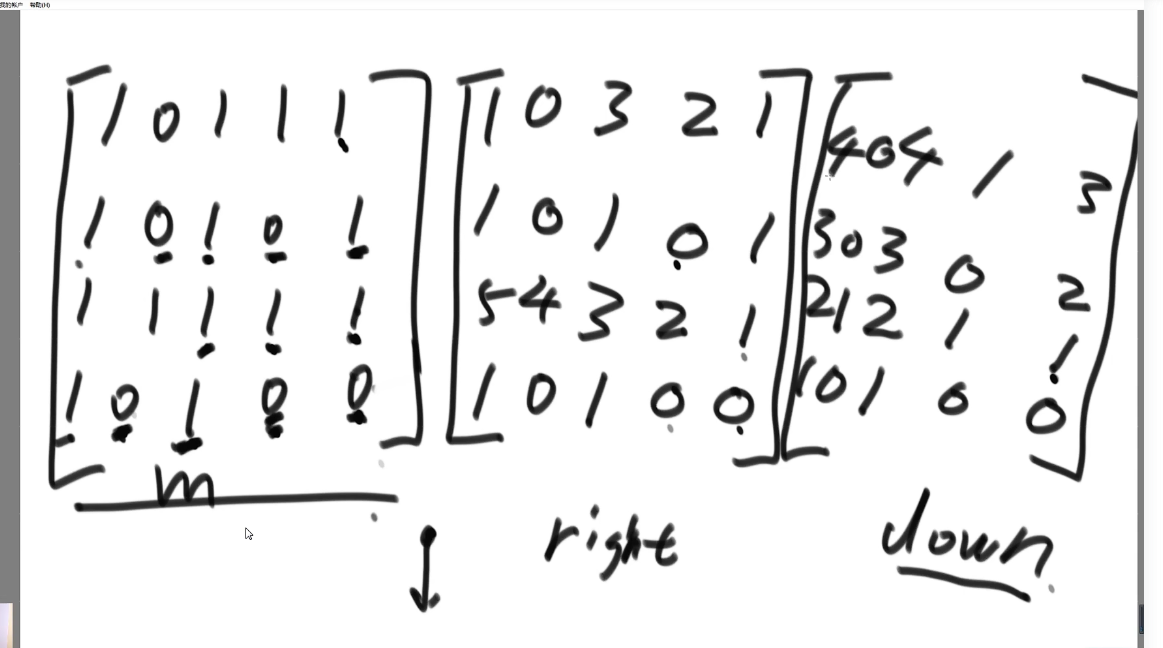 我的帐户 帮助(H)
1 0 1 1 1
1 0 1 0 1
1 1 1 1 1
1 0 1 0 0
m
1 0 3 2 1
1 0 1 0 1
5 4 3 2 1
1 0 1 0 0
right
4 0 4 1 3
3 0 3 0 2
2 1 2 1 1
1 0 1 0 0
down